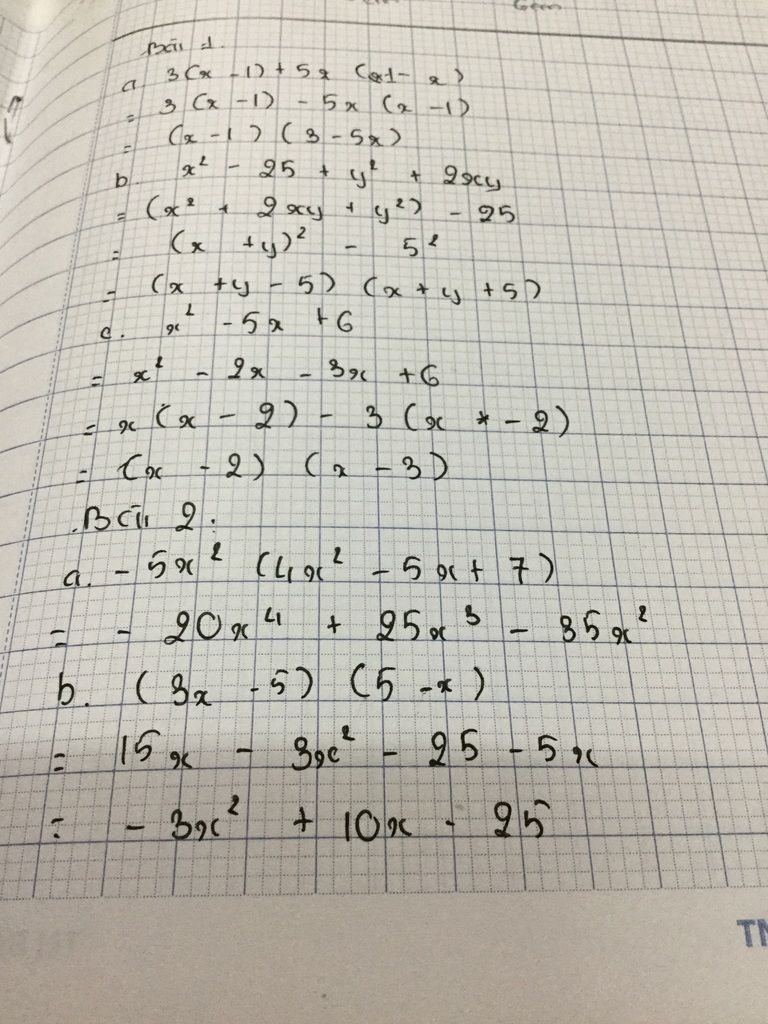 6cm
Bài 1.
a. 3(x - 1) + 5x (1 - x)
= 3 (x - 1) - 5x (x - 1)
= (x - 1) (3 - 5x)
b. x² - 25 + y² + 2xy
= (x² + 2xy + y²) - 25
= (x + y)² - 5²
= (x + y - 5) (x + y + 5)
c. x² - 5x + 6
= x² - 2x - 3x + 6
= x (x - 2) - 3 (x - 2)
= (x - 2) (x - 3)
Bài 2.
a. - 5x² (4x² - 5x + 7)
= - 20x⁴ + 25x³ - 35x²
b. (3x - 5) (5 - x)
= 15x - 3x² - 25 - 5x
= - 3x² + 10x - 25
TN